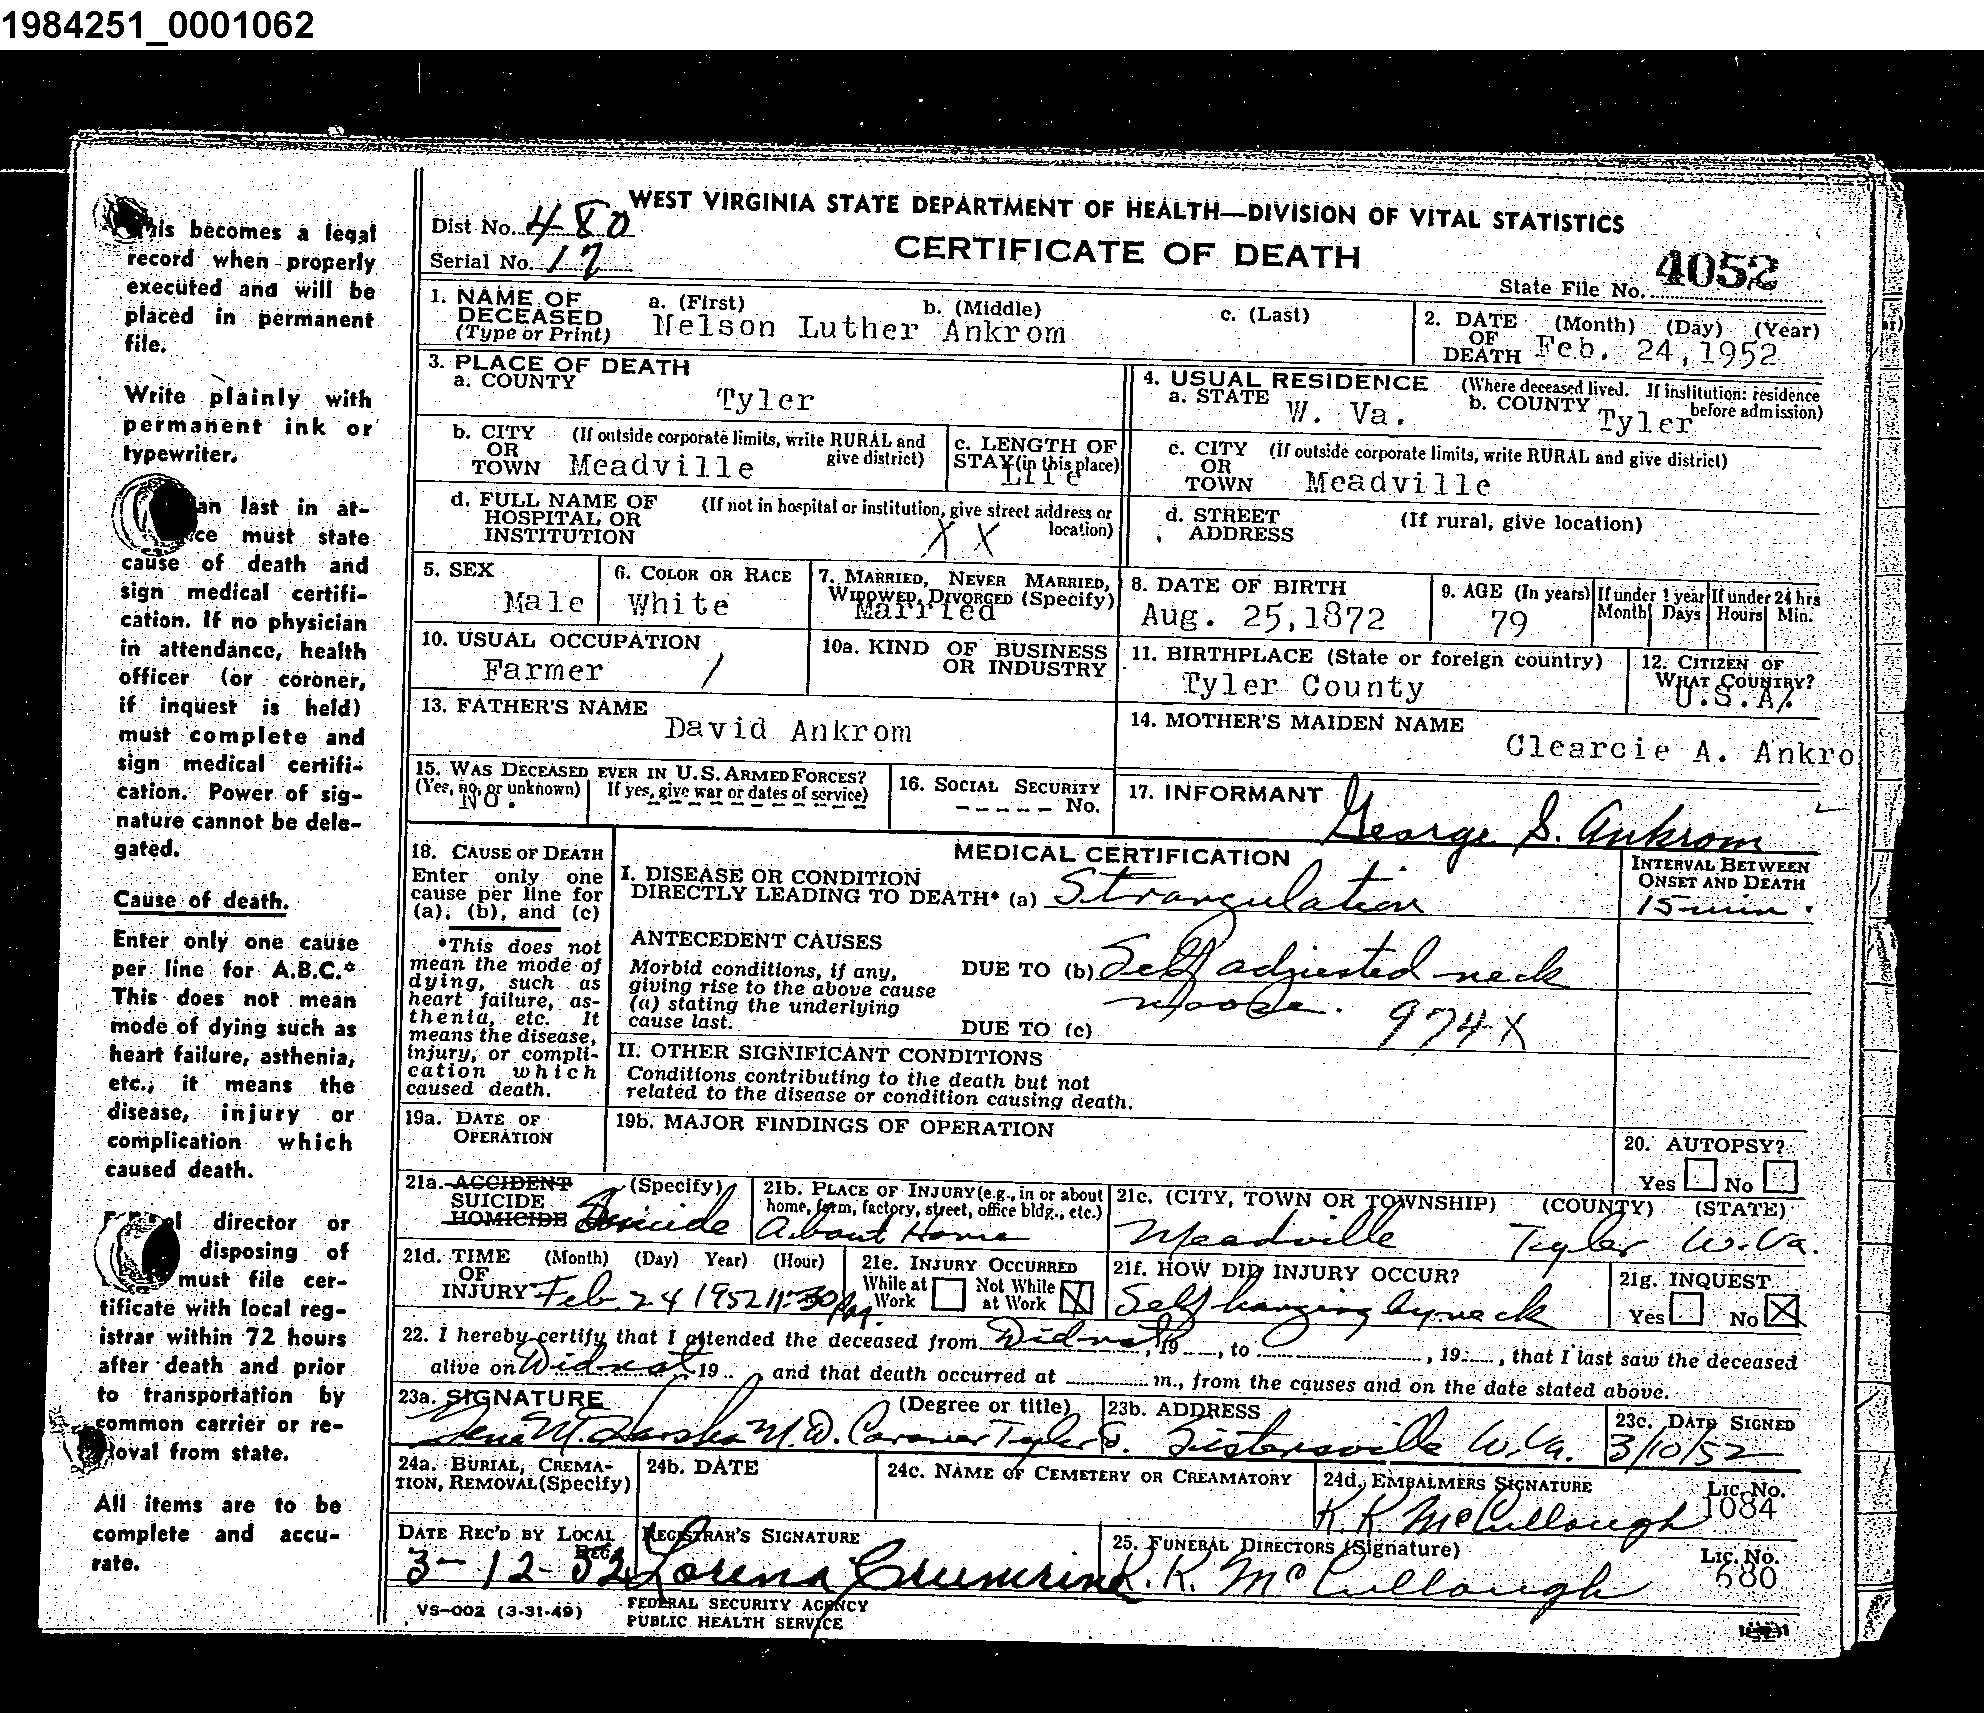 1984251_0001062
This becomes a legal
record when properly
executed and will be
placed in permanent
file.
Write plainly with
permanent ink or
typewriter.
an last in at-
ce must state
cause of death and
sign medical certifi-
cation. If no physician
in attendance, health
officer (or coroner,
if inquest is held)
must complete and
sign medical certifi-
cation. Power of sig-
nature cannot be dele-
gated.
Cause of death.
Enter only one cause
per line for A.B.C.*
This does not mean
mode of dying such as
heart failure, asthenia,
etc., it means the
disease, injury or
complication which
caused death.
director or
disposing of
must file cer-
tificate with local reg-
istrar within 72 hours
after death and prior
to transportation by
common carrier or re-
moval from state.
All items are to be
complete and accu-
rate.
WEST VIRGINIA STATE DEPARTMENT OF HEALTH—DIVISION OF VITAL STATISTICS
Dist No. 480
CERTIFICATE OF DEATH
Serial No. 17
State File No. 4052
1. NAME OF DECEASED (Type or Print) a. (First) b. (Middle) c. (Last)
Nelson Luther Ankrom
2. DATE OF DEATH (Month) (Day) (Year)
Feb. 24, 1952
3. PLACE OF DEATH
a. COUNTY Tyler
4. USUAL RESIDENCE (Where deceased lived. If institution: residence before admission)
a. STATE W. Va. b. COUNTY Tyler
b. CITY OR TOWN (If outside corporate limits, write RURAL and give district) Meadville
c. LENGTH OF STAY (in this place) Life
c. CITY OR TOWN (If outside corporate limits, write RURAL and give district) Meadville
d. FULL NAME OF HOSPITAL OR INSTITUTION (If not in hospital or institution, give street address or location) X X
d. STREET ADDRESS (If rural, give location)
5. SEX Male
6. COLOR OR RACE White
7. MARRIED, NEVER MARRIED, WIDOWED, DIVORCED (Specify) Married
8. DATE OF BIRTH Aug. 25, 1872
9. AGE (In years) 79
If under 1 year Month Days
If under 24 hrs Hours Min.
10. USUAL OCCUPATION Farmer /
10a. KIND OF BUSINESS OR INDUSTRY
11. BIRTHPLACE (State or foreign country) Tyler County
12. CITIZEN OF WHAT COUNTRY? U.S.A.
13. FATHER'S NAME David Ankrom
14. MOTHER'S MAIDEN NAME Clearcie A. Ankro
15. WAS DECEASED EVER IN U.S. ARMED FORCES?
(Yes, no, or unknown) If yes, give war or dates of service)
No. - - - - - - - - -
16. SOCIAL SECURITY No. - - - - -
17. INFORMANT George S. Ankrom
18. CAUSE OF DEATH
Enter only one
cause per line for
(a), (b), and (c)
*This does not
mean the mode of
dying, such as
heart failure, as-
thenia, etc. It
means the disease,
injury, or compli-
cation which
caused death.
MEDICAL CERTIFICATION
INTERVAL BETWEEN ONSET AND DEATH
I. DISEASE OR CONDITION
DIRECTLY LEADING TO DEATH* (a) Strangulation 15 min.
ANTECEDENT CAUSES
Morbid conditions, if any,
giving rise to the above cause
(a) stating the underlying
cause last.
DUE TO (b) Self adjusted neck
noose. 974X
DUE TO (c)
II. OTHER SIGNIFICANT CONDITIONS
Conditions contributing to the death but not
related to the disease or condition causing death.
19a. DATE OF OPERATION
19b. MAJOR FINDINGS OF OPERATION
20. AUTOPSY?
Yes No
21a. ACCIDENT SUICIDE HOMICIDE (Specify) Suicide
21b. PLACE OF INJURY (e.g., in or about home, farm, factory, street, office bldg., etc.) About Home
21c. (CITY, TOWN OR TOWNSHIP) (COUNTY) (STATE)
Meadville Tyler W.Va.
21d. TIME OF INJURY (Month) (Day) Year) (Hour)
Feb. 24 1952 11:30
21e. INJURY OCCURRED
While at Work Not While at Work X
21f. HOW DID INJURY OCCUR?
Self hanging by neck
21g. INQUEST
Yes No X
22. I hereby certify that I attended the deceased from Did not, 19......, to ............, 19......, that I last saw the deceased
alive on Did not 19.., and that death occurred at ............m., from the causes and on the date stated above.
23a. SIGNATURE (Degree or title)
M. M.D. Coroner Tyler Co.
23b. ADDRESS Sistersville W.Va.
23c. DATE SIGNED 3/10/52
24a. BURIAL, CREMATION, REMOVAL (Specify)
24b. DATE
24c. NAME OF CEMETERY OR CREAMATORY
24d. EMBALMERS SIGNATURE Lic. No.
K. K. McCullough 1084
DATE REC'D BY LOCAL REG. 3-12-52
REGISTRAR'S SIGNATURE Lorena Crumrine
25. FUNERAL DIRECTORS (Signature) Lic. No.
K. K. McCullough 680
VS-002 (3-31-49)
FEDERAL SECURITY AGENCY
PUBLIC HEALTH SERVICE